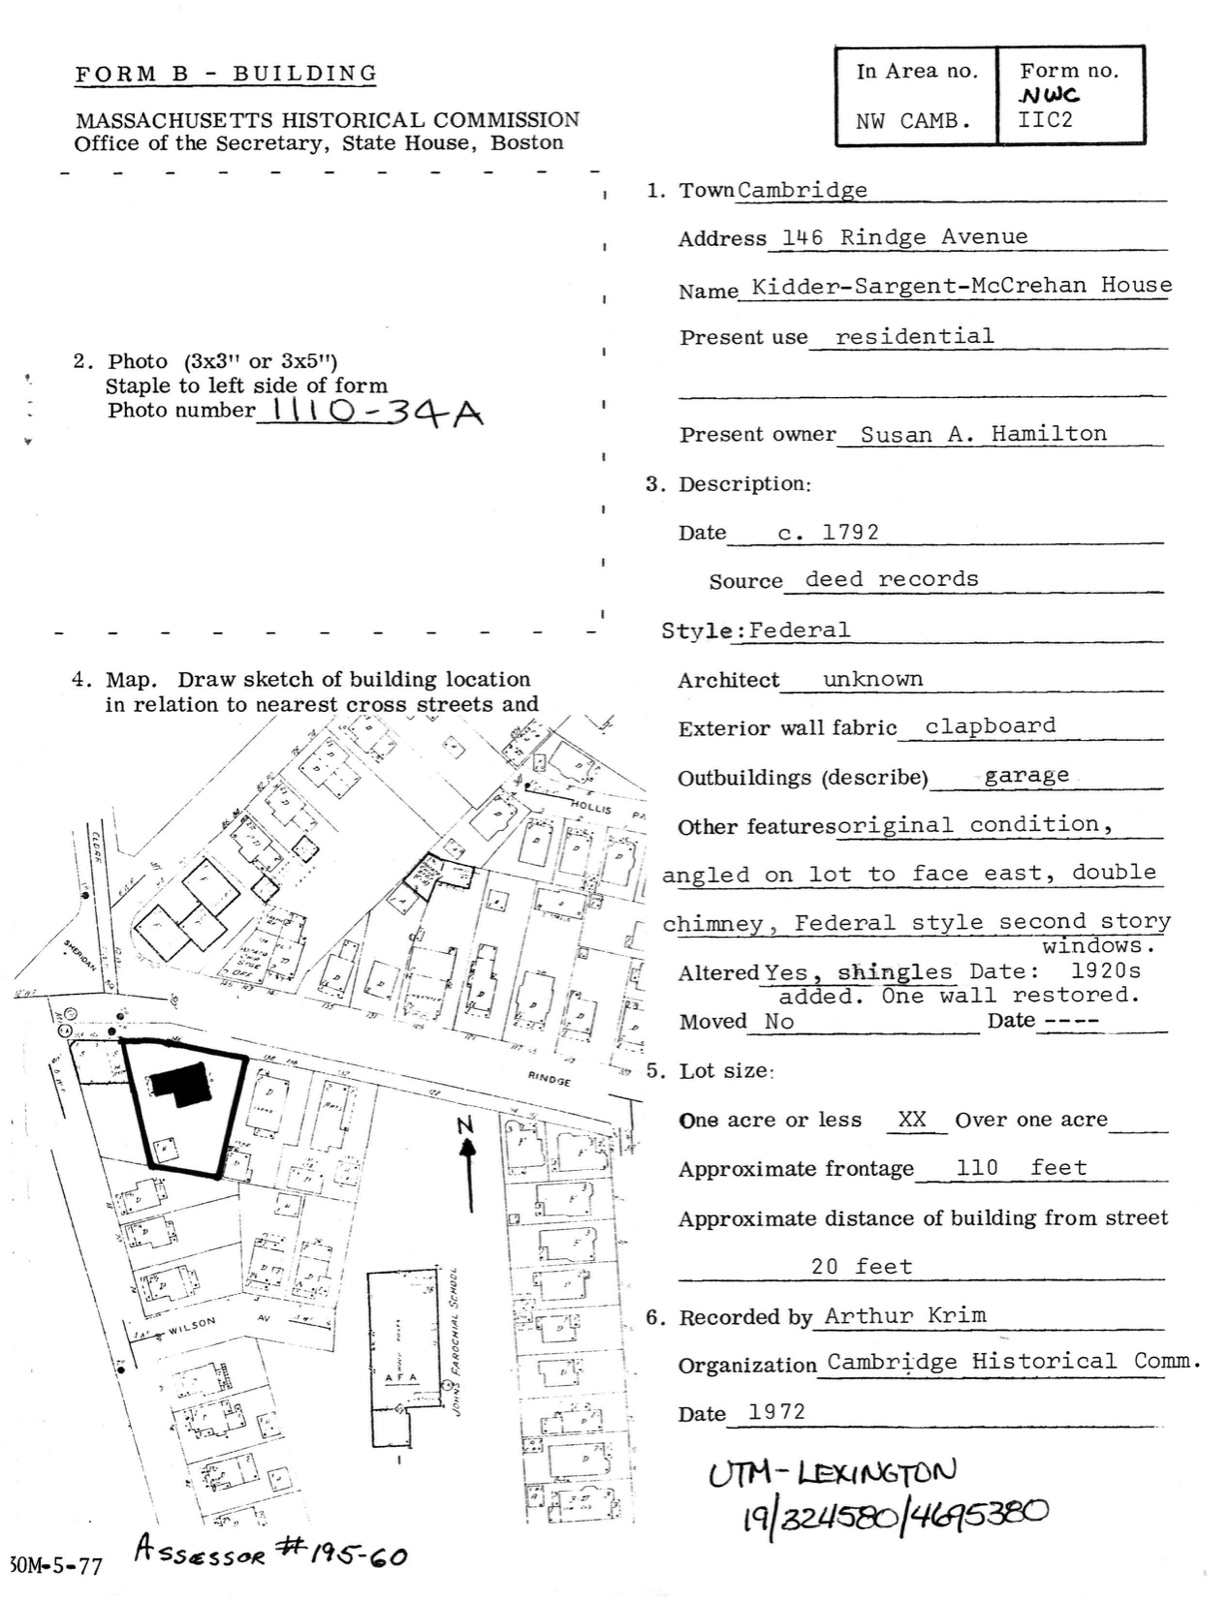 FORM B - BUILDING
MASSACHUSETTS HISTORICAL COMMISSION
Office of the Secretary, State House, Boston
In Area no.
NW CAMB.
Form no.
NWC
IIC2
2. Photo (3x3" or 3x5")
Staple to left side of form
Photo number 1110-34A
4. Map. Draw sketch of building location
in relation to nearest cross streets and
HOLLIS
SHERIDAN
RINDGE
N
WILSON AV
AFA
JOHNS PAROCHIAL SCHOOL
Assessor #195-60
30M-5-77
1. Town Cambridge
Address 146 Rindge Avenue
Name Kidder-Sargent-McCrehan House
Present use residential
Present owner Susan A. Hamilton
3. Description:
Date c. 1792
Source deed records
Style: Federal
Architect unknown
Exterior wall fabric clapboard
Outbuildings (describe) garage
Other features original condition,
angled on lot to face east, double
chimney, Federal style second story
windows.
Altered Yes, shingles Date: 1920s
added. One wall restored.
Moved No Date ----
5. Lot size:
One acre or less XX Over one acre
Approximate frontage 110 feet
Approximate distance of building from street
20 feet
6. Recorded by Arthur Krim
Organization Cambridge Historical Comm.
Date 1972
UTM-LEXINGTON
19/324580/4695380